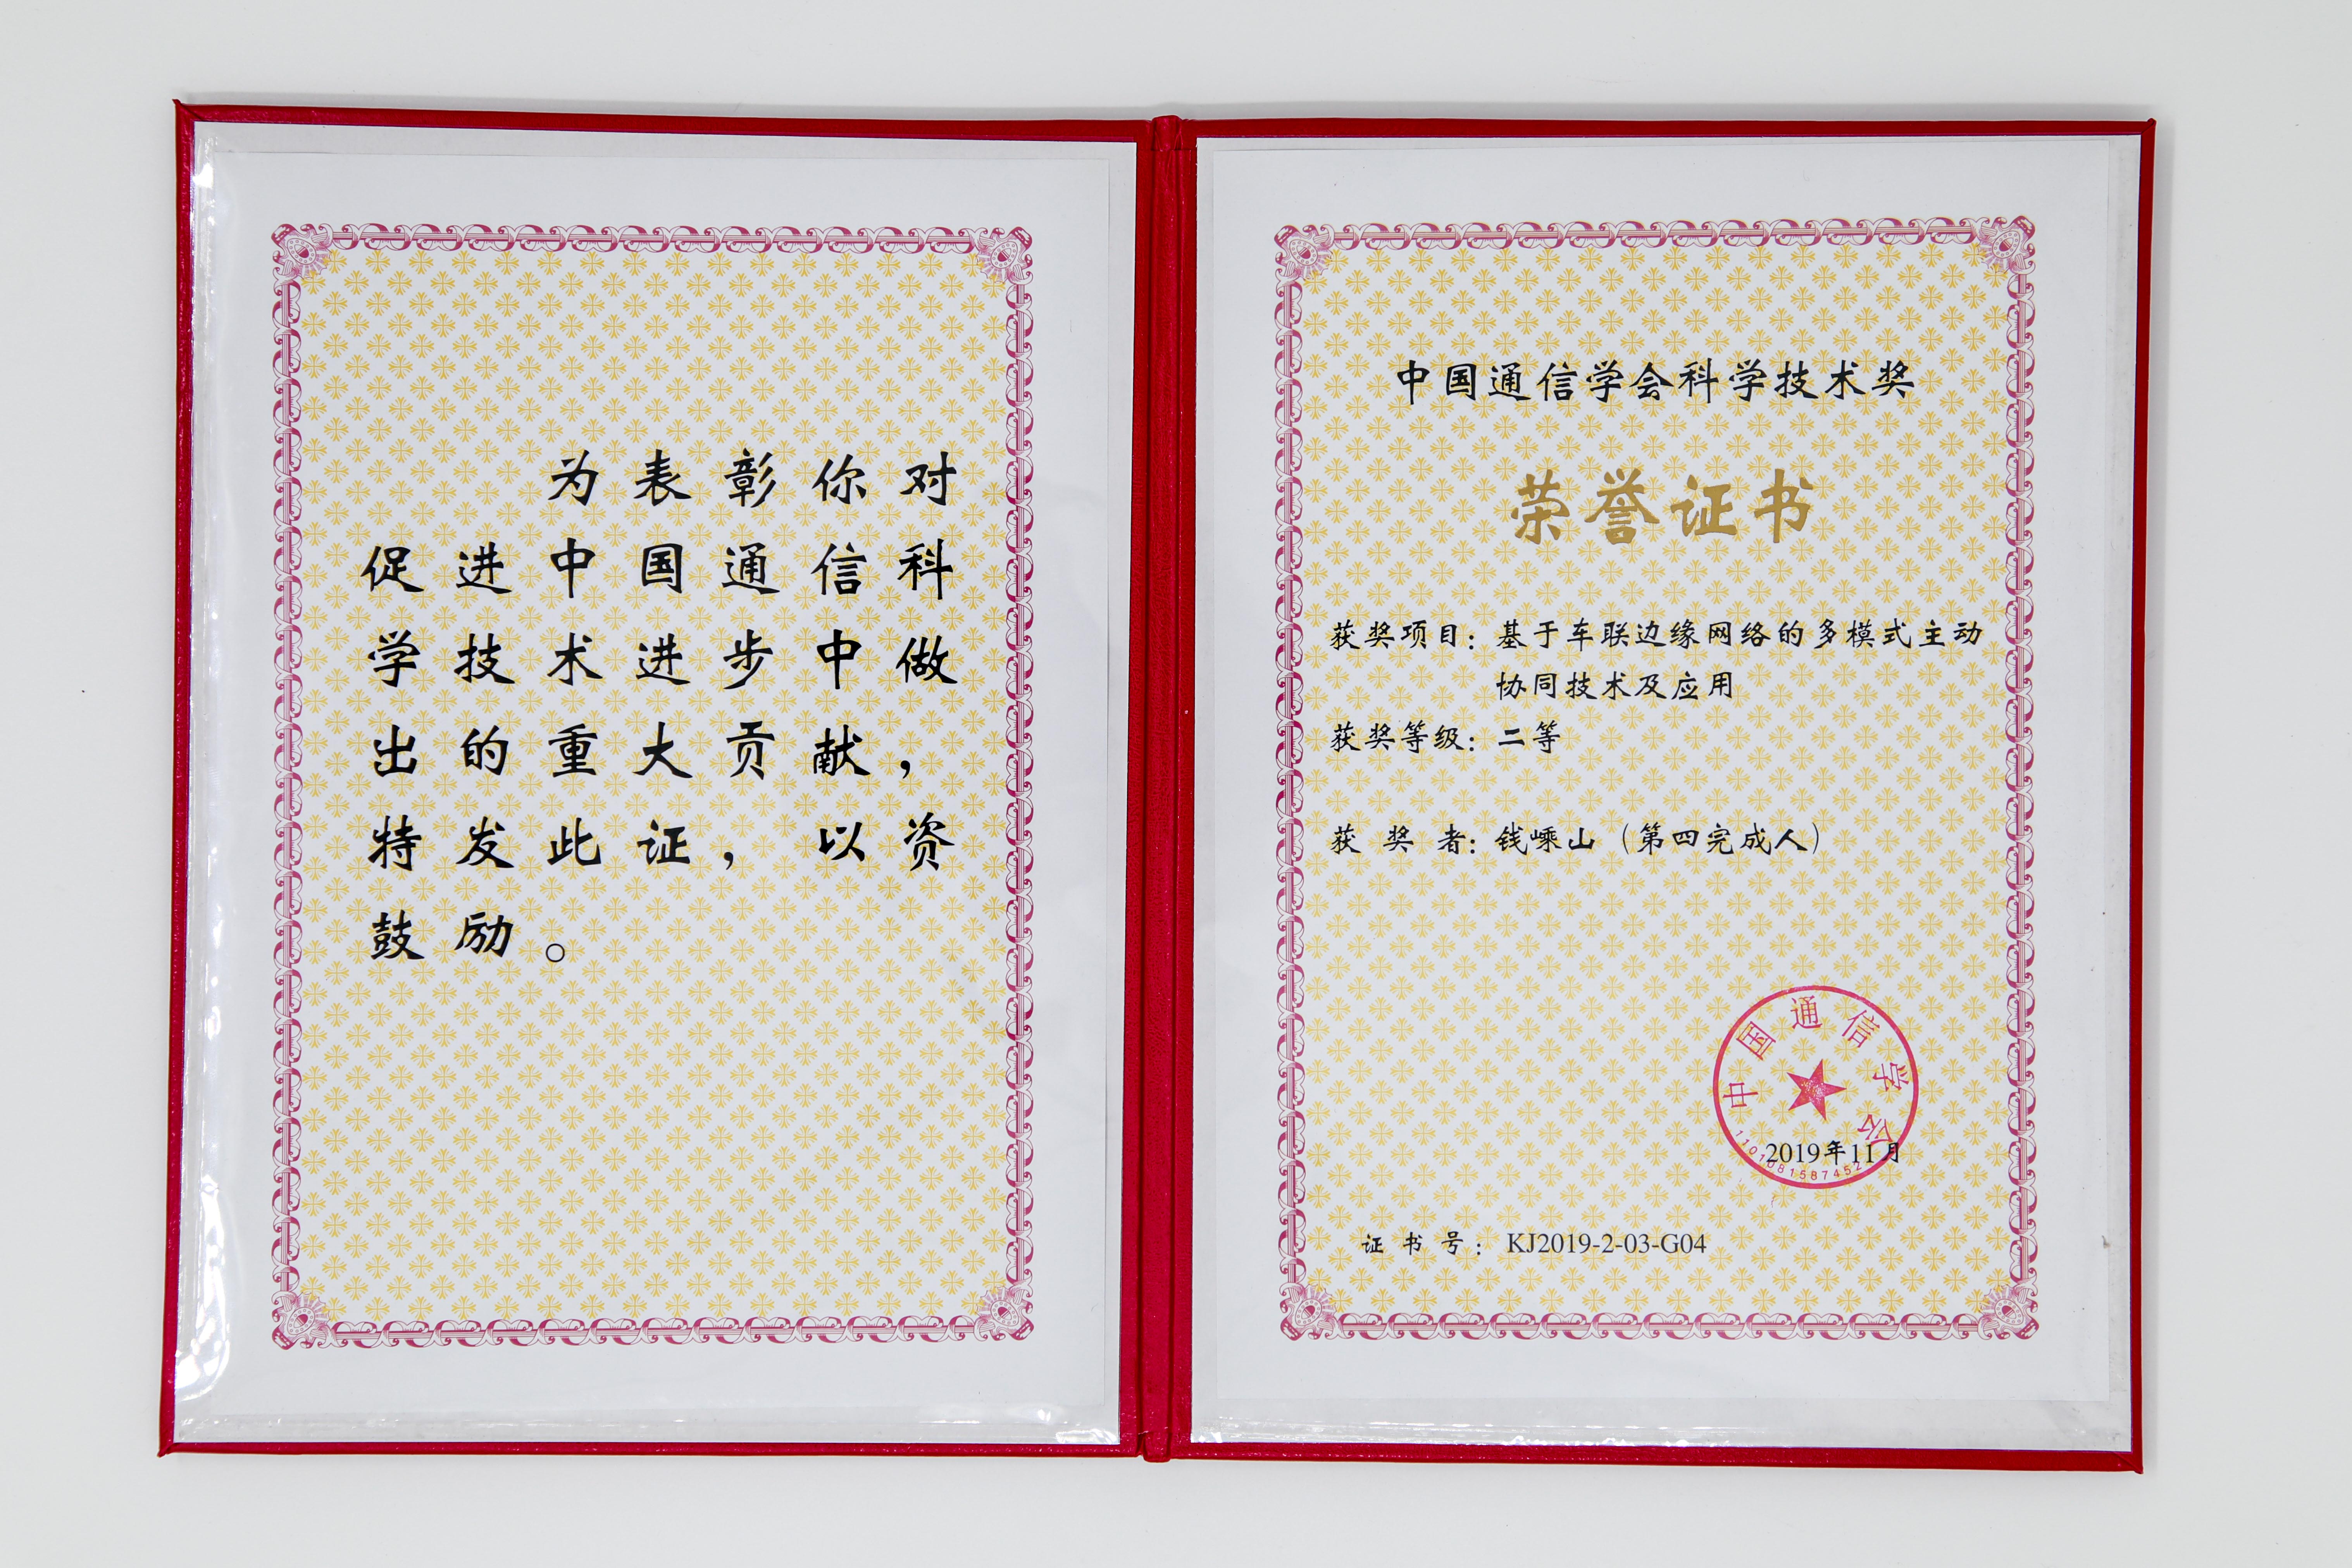 为表彰你对
促进中国通信科
学技术进步中做
出的重大贡献，
特发此证，以资
鼓励。
中国通信学会科学技术奖
荣誉证书
获奖项目：基于车联边缘网络的多模式主动
协同技术及应用
获奖等级：二等
获奖者：钱嵊山（第四完成人）
中国通信学会
2019年11月
1101081587452
证书号：KJ2019-2-03-G04